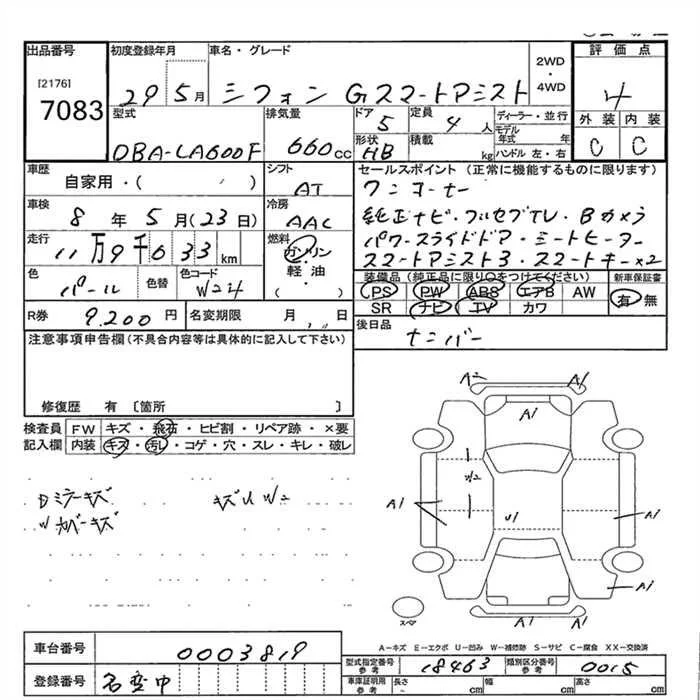 出品番号 初度登録年月 車名・グレード 2WD・4WD 評価点
[2176]
7083
29 5月 シフォン Gスマートアシスト 4
型式 排気量 ドア 定員 ディーラー・並行 外装 内装
DBA-LA600F 660cc 5 4人 モデル年式 年 C C
形状 積載 ハンドル 左・右
HB kg
車歴 シフト セールスポイント (正常に機能するものに限ります)
自家用・( ) AT ワンオーナー
車検 冷房 純正ナビ・フルセグTV・Bカメラ
8年 5月 (23日) AAC パワースライドドア・シートヒーター
走行 燃料 スマートアシスト3・スマートキー×2
11万9千033km ガソリン・軽油 ( )
色 色替 色コード 装備品(純正品に限り○をつけてください) 新車保証書
パール W24 PS PW ABS エアB AW 有 無
SR ナビ TV カワ
R券 9,200円 名変期限 月 日 後日品
ナンバー
注意事項申告欄(不具合内容等は具体的に記入して下さい)
修復歴 有 [箇所 ]
検査員 FW キズ・飛石・ヒビ割・リペア跡・×要
記入欄 内装 キズ・汚レ・コゲ・穴・スレ・キレ・破レ
Dミラーキズ キズU W2
Wカバーキズ
A2 A1
A1
W2
A1 U1 A1
A1
A1 A1
スペア
A-キズ E-エクボ U-凹み W-補修跡 S-サビ C-腐食 XX-交換済
車台番号 0003819
型式指定番号 参考 18463 類別区分番号 参考 0015
登録番号 名変中
車庫証明用 参考 長さ cm 幅 cm 高さ cm